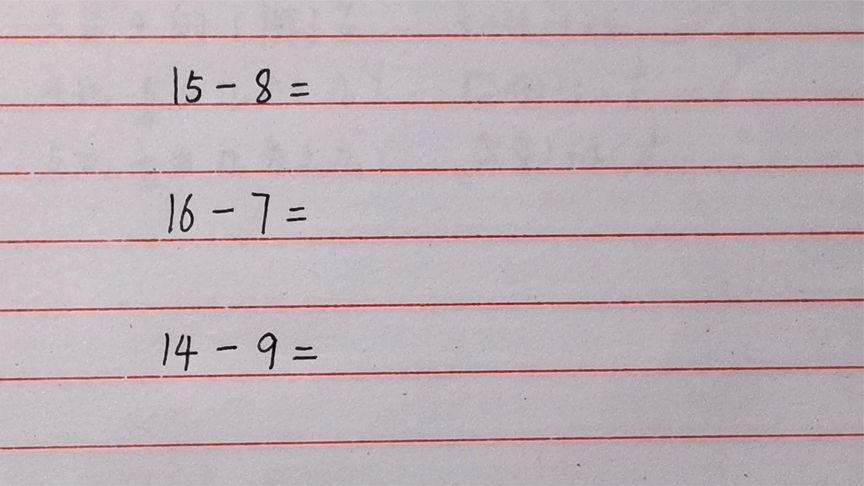 15 - 8 =
16 - 7 =
14 - 9 =